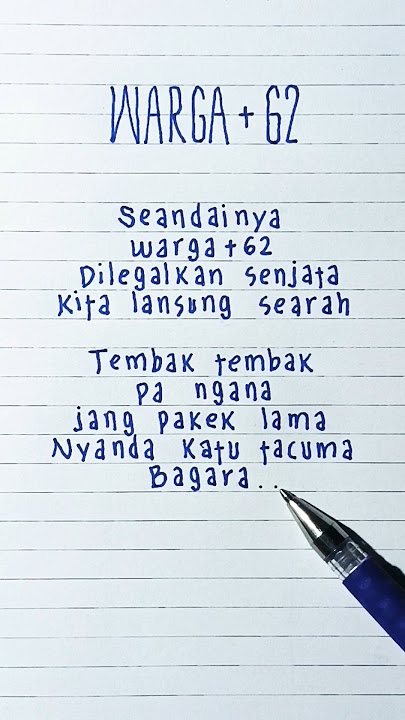 WARGA + 62
Seandainya
warga + 62
Dilegalkan senjata
Kita lansung searah
Tembak tembak
pa ngana
jang pakek lama
Nyanda Katu tacuma
Bagara . .